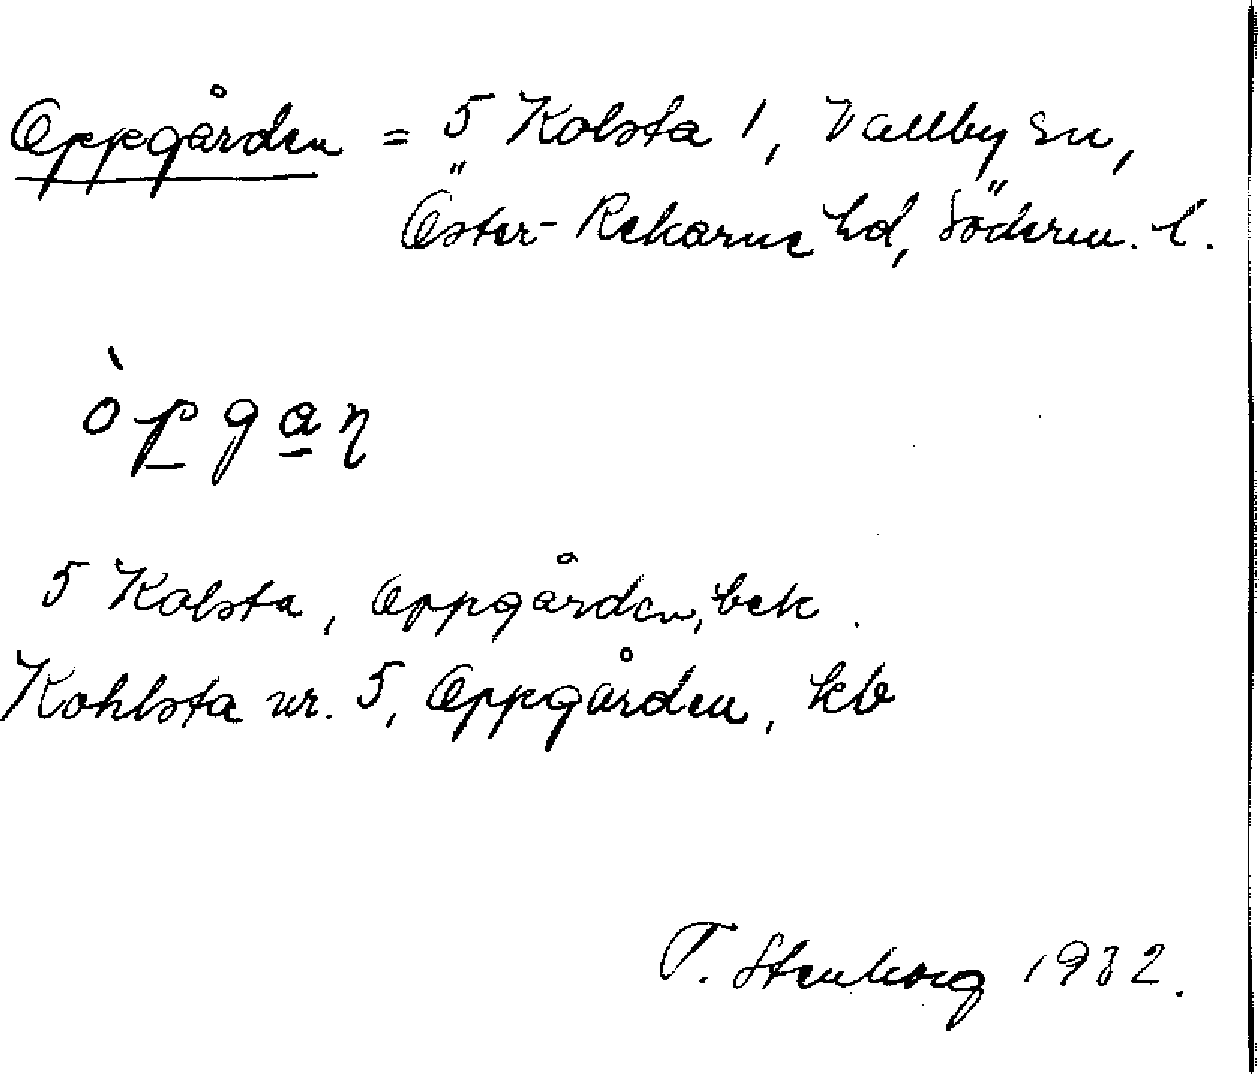 Oppgården = 5 Kolsta 1, Vallby sn,
Öster-Rekarne hd, Söderm. l.
òpgaɳ
5 Kolsta, Oppgården, bek.
Kohlsta nr. 5, Oppgården, kb
T. Stenborg 1932.